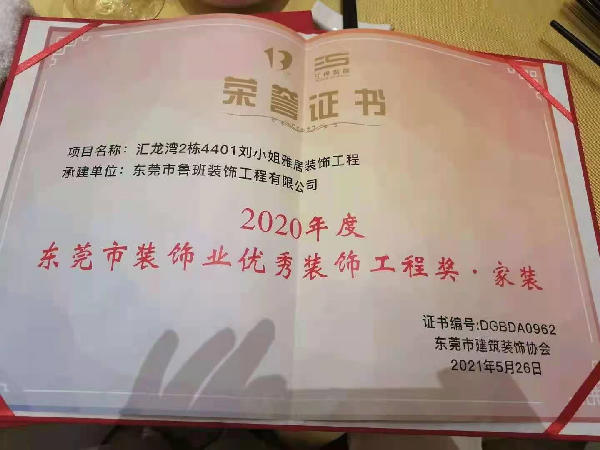 荣誉证书
项目名称：汇龙湾2栋4401刘小姐雅居装饰工程
承建单位：东莞市鲁班装饰工程有限公司
2020年度
东莞市装饰业优秀装饰工程奖·家装
证书编号:DGBDA0962
东莞市建筑装饰协会
2021年5月26日